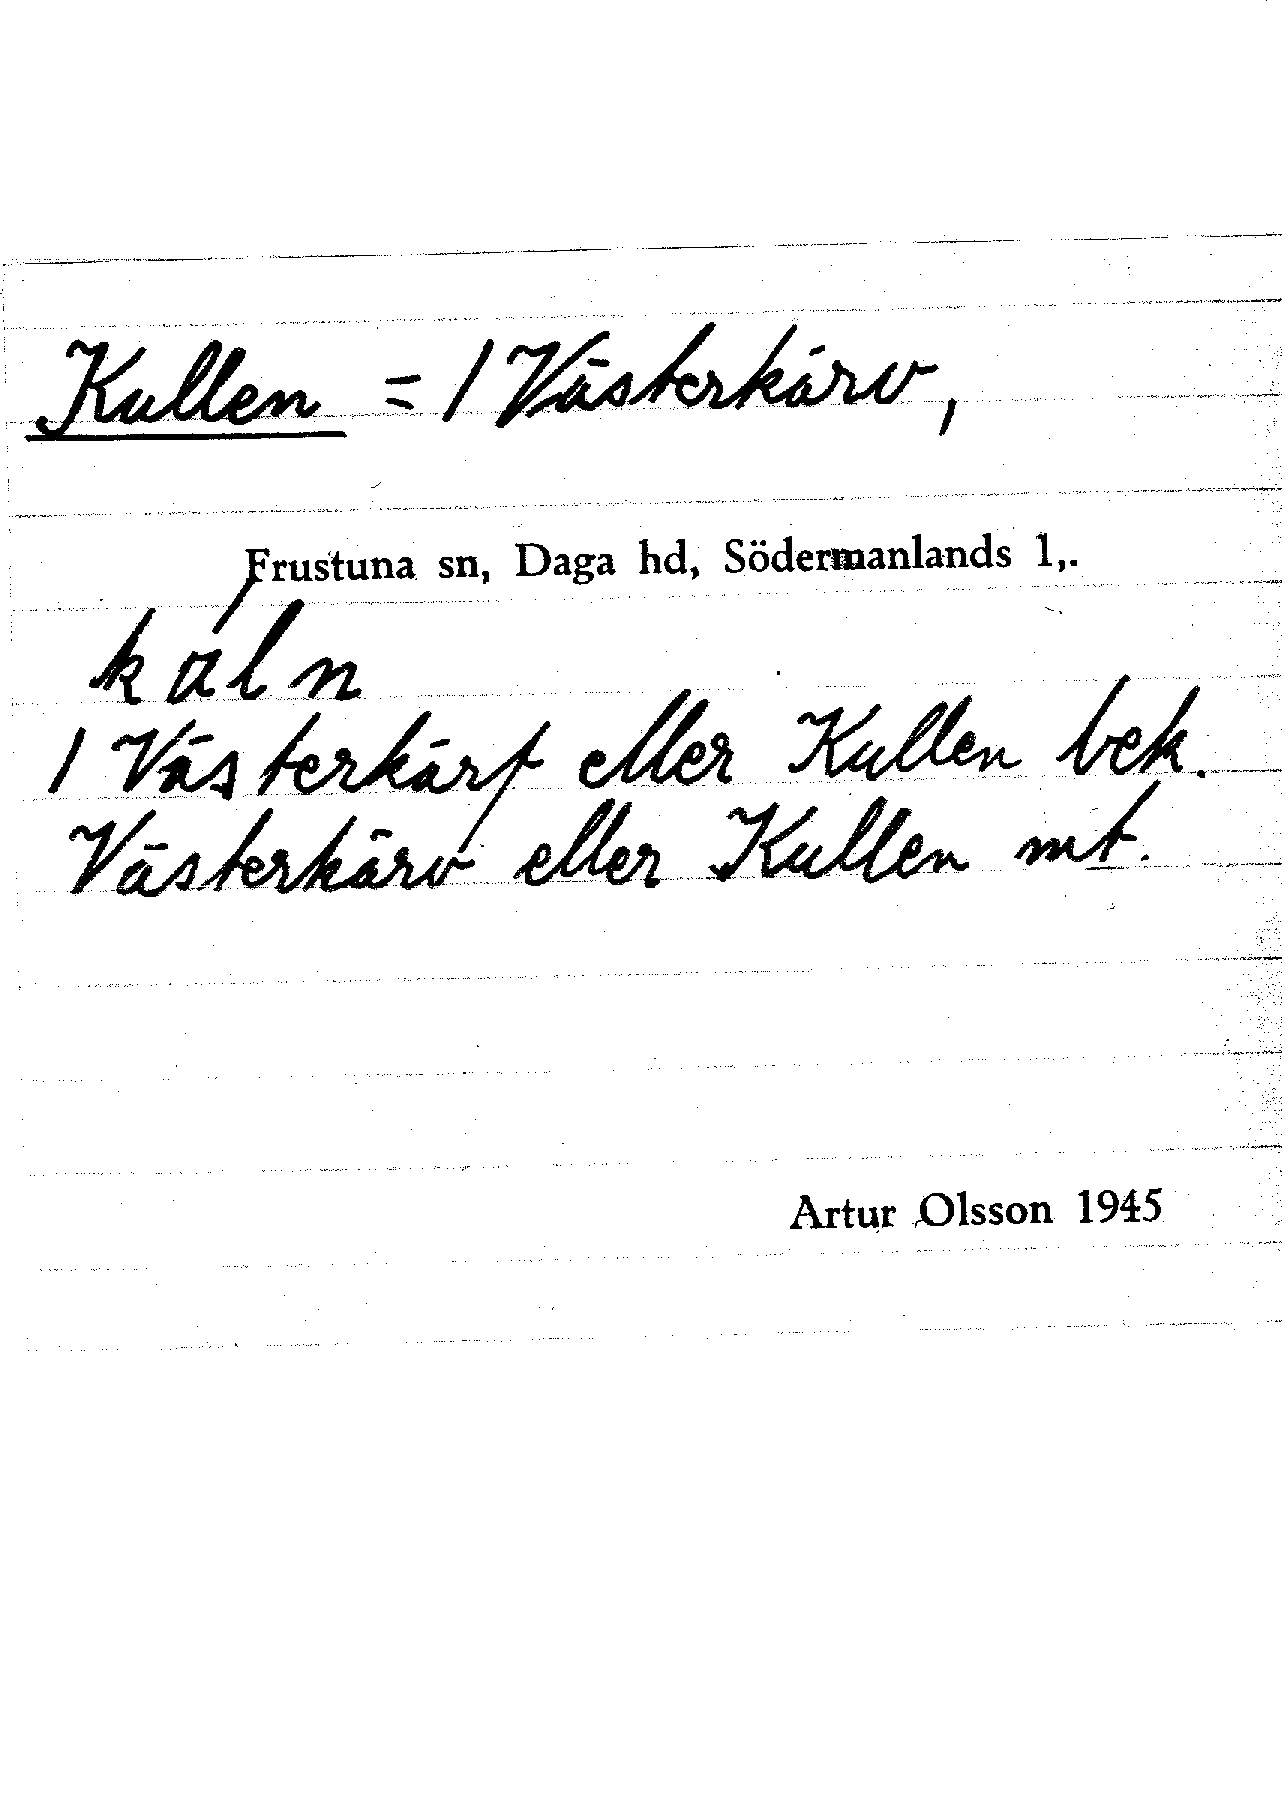 Kullen = 1 Västerkärv,
Frustuna sn, Daga hd, Södermanlands l,.
kal n
1 Västerkärf eller Kullen bek.
Västerkärv eller Kullen mt.
Artur Olsson 1945